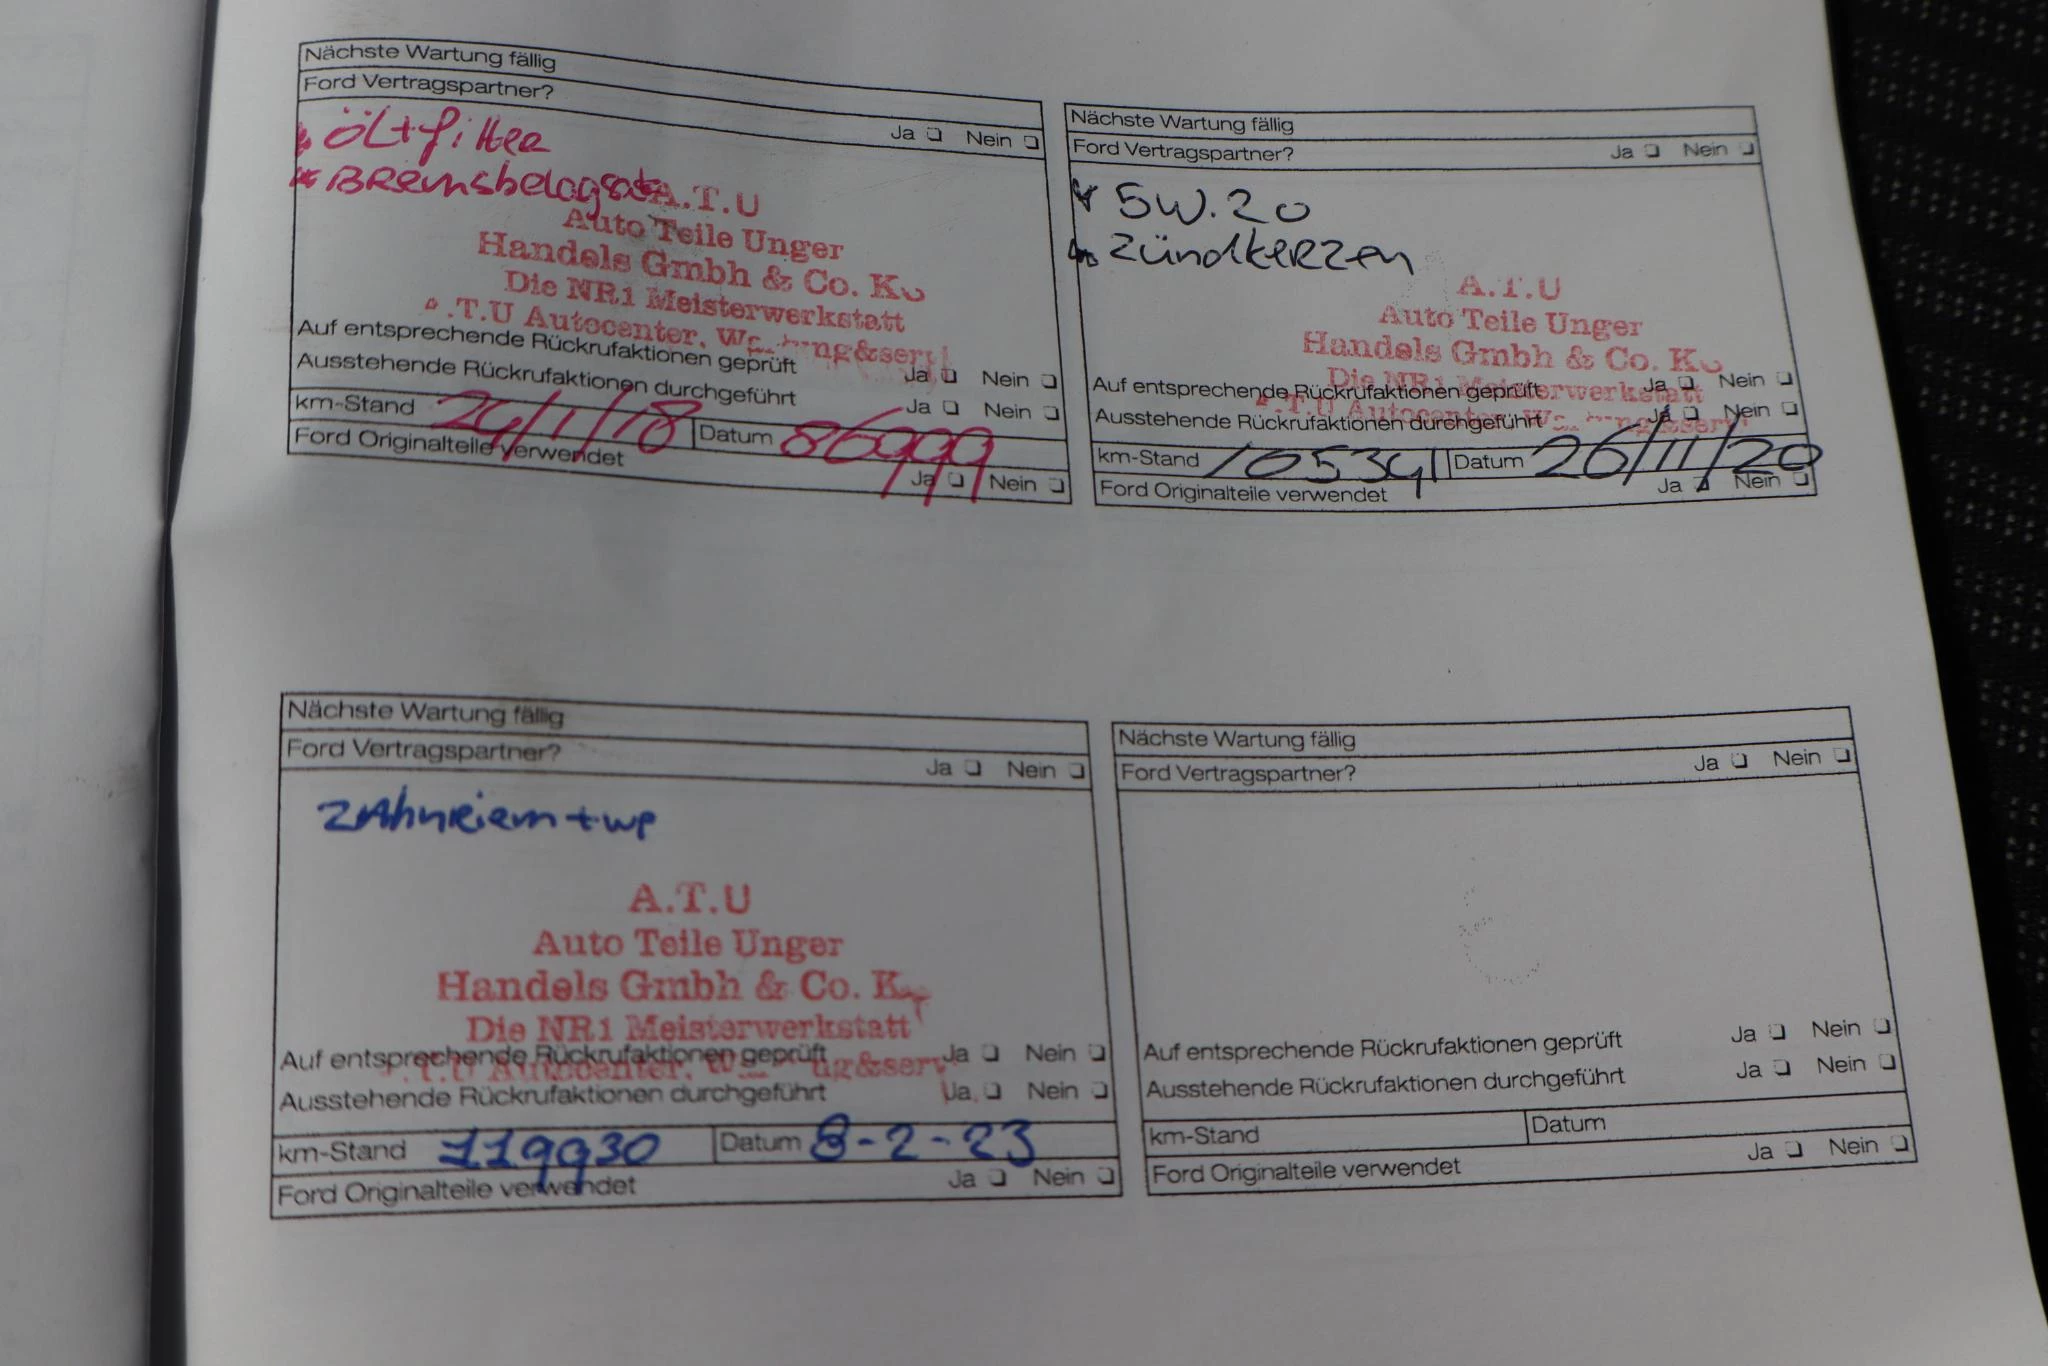 Nächste Wartung fällig
Ford Vertragspartner?
Ja Nein
ÖL+filter
Bremsbelagsatz
A.T.U
Auto Teile Unger
Handels Gmbh & Co. K
Die NR1 Meisterwerkstatt
.T.U Autocenter,
Auf entsprechende Rückrufaktionen geprüft Ja Nein
Ausstehende Rückrufaktionen durchgeführt Ja Nein
km-Stand 24/1/18 Datum 86999
Ford Originalteile verwendet Ja Nein
Nächste Wartung fällig
Ford Vertragspartner? Ja Nein
5W.20
Zündkerzen
A.T.U
Auto Teile Unger
Handels Gmbh & Co. K
Die NR1 Meisterwerkstatt
.T.U Autocenter,
Auf entsprechende Rückrufaktionen geprüft Ja Nein
Ausstehende Rückrufaktionen durchgeführt Ja Nein
km-Stand 105341 Datum 26/11/20
Ford Originalteile verwendet Ja Nein
Nächste Wartung fällig
Ford Vertragspartner? Ja Nein
Zahnriem+wp
A.T.U
Auto Teile Unger
Handels Gmbh & Co. K
Die NR1 Meisterwerkstatt
.T.U Autocenter,
Auf entsprechende Rückrufaktionen geprüft Ja Nein
Ausstehende Rückrufaktionen durchgeführt Ja Nein
km-Stand 119930 Datum 8-2-23
Ford Originalteile verwendet Ja Nein
Nächste Wartung fällig
Ford Vertragspartner? Ja Nein
Auf entsprechende Rückrufaktionen geprüft Ja Nein
Ausstehende Rückrufaktionen durchgeführt Ja Nein
km-Stand Datum
Ford Originalteile verwendet Ja Nein